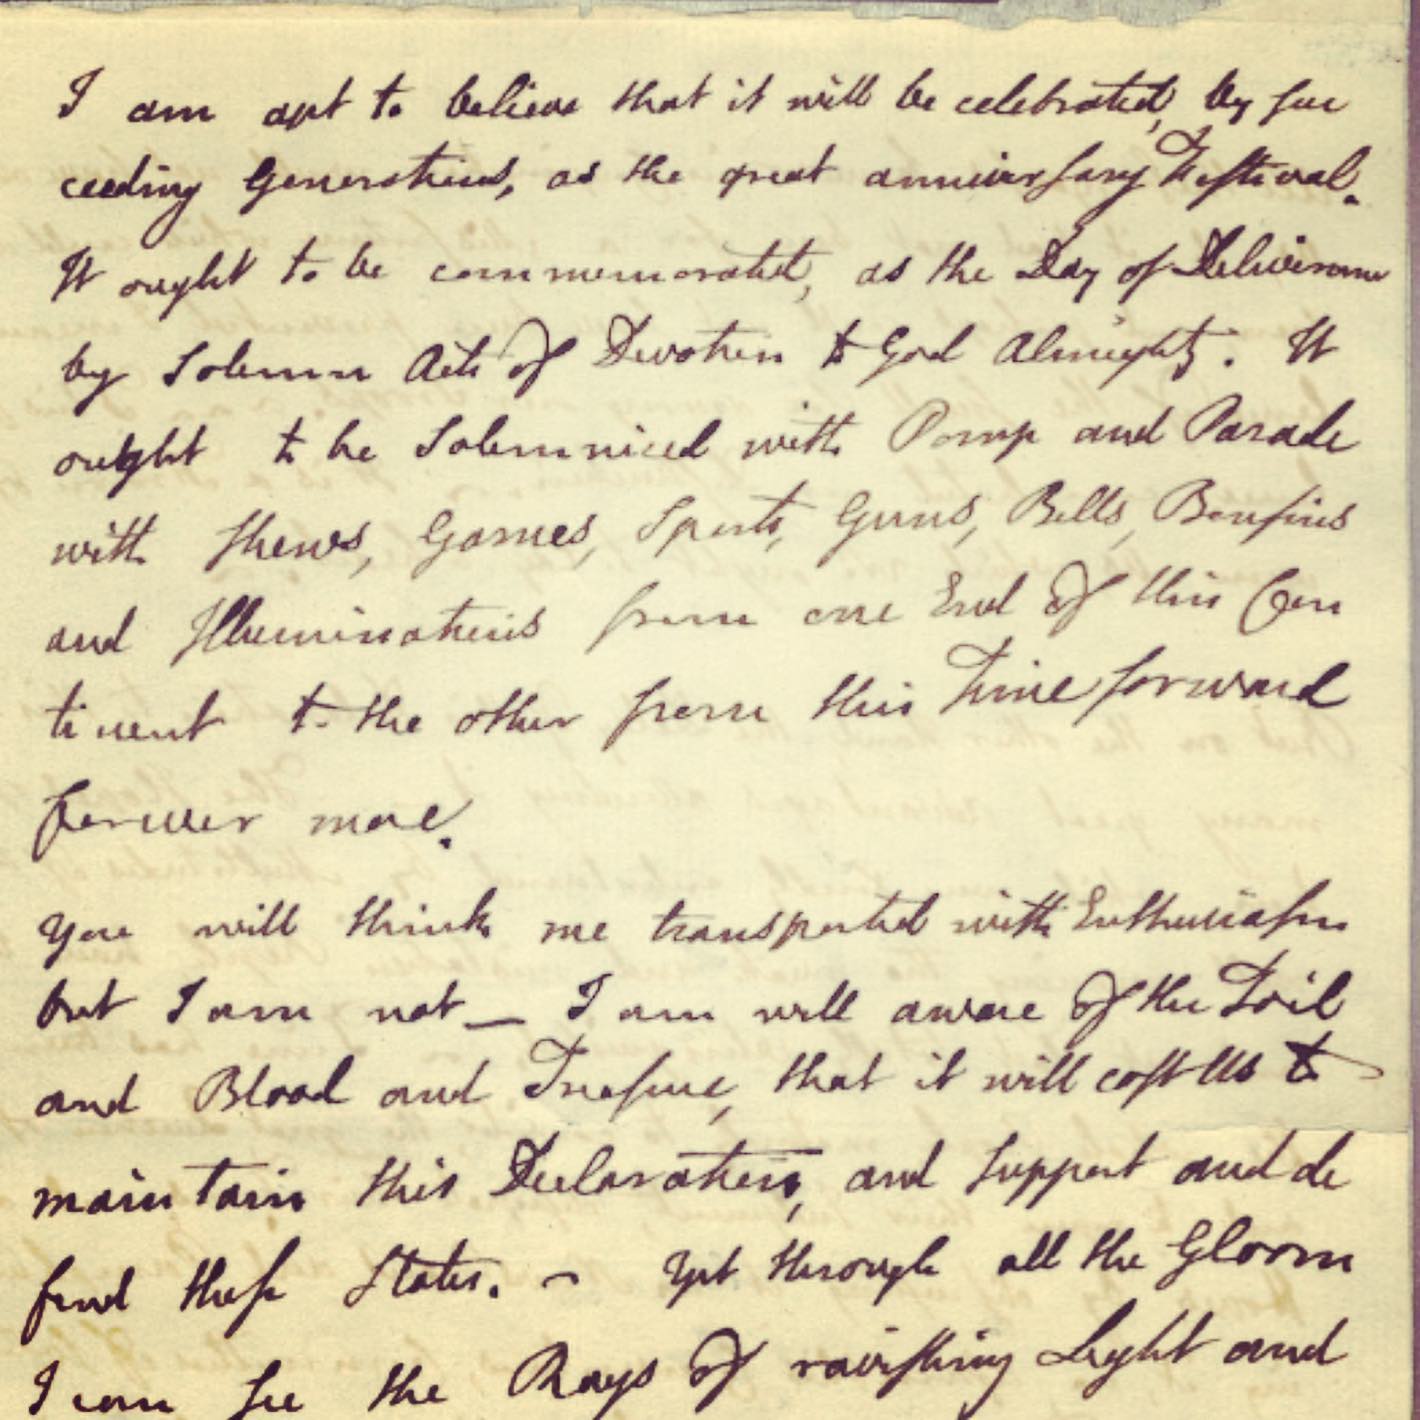 I am apt to believe that it will be celebrated, by suc
ceeding Generations, as the great anniversary Festival.
It ought to be commemorated, as the Day of Deliverance
by solemn Acts of Devotion to God Almighty. It
ought to be solemnized with Pomp and Parade
with Shews, Games, Sports, Guns, Bells, Bonfires
and Illuminations from one End of this Con
tinent to the other from this Time forward
forever more.
You will think me transported with Enthusiasm
but I am not — I am well aware of the Toil
and Blood and Treasure, that it will cost Us to
maintain this Declaration, and support and de
fend these States. – Yet through all the Gloom
I can see the Rays of ravishing Light and